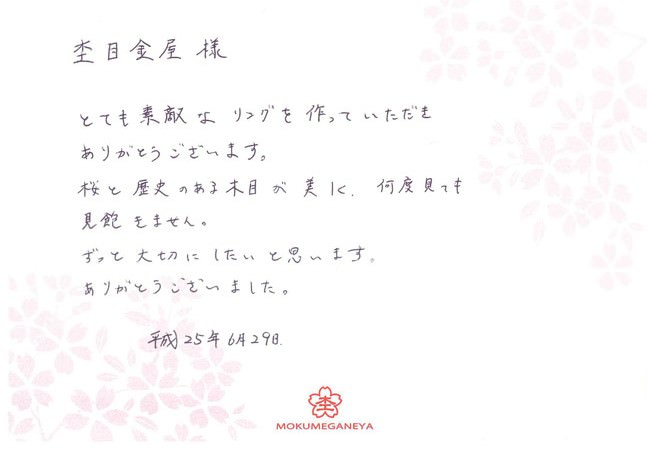 杢目金屋 様
とても素敵な リングを 作って いただき
ありがとうございます。
桜と 歴史のある木目が 美しく、何度見ても
見飽きません。
ずっと 大切に したい と思います。
ありがとうございました。
平成25年6月29日.
杢
MOKUMEGANEYA